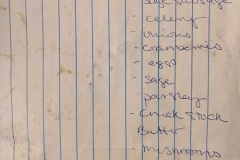 sausage
- celery
- onions
- cranberries
- eggs
- sage
parsley
- Chick Stock
Butter
- mushrooms